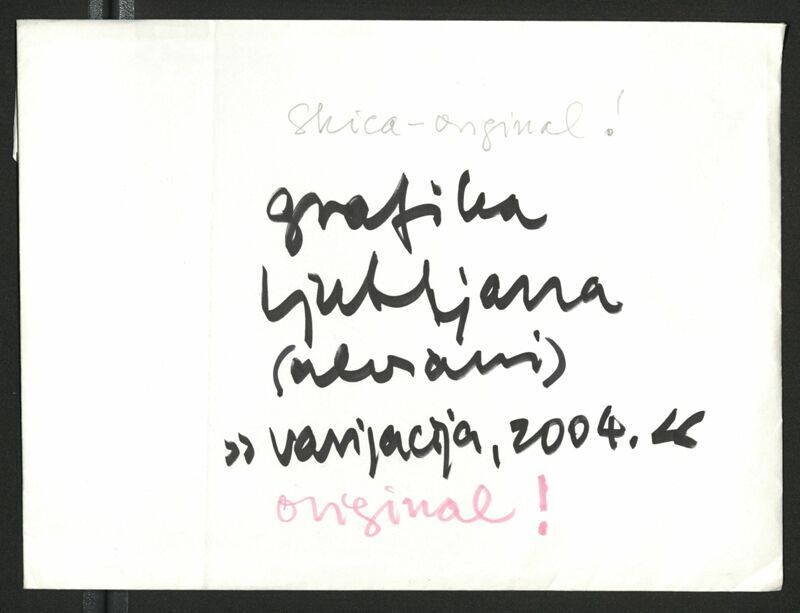 skica-original!
grafika
Ljubljana
(alviani)
»varijacija, 2004.«
original!